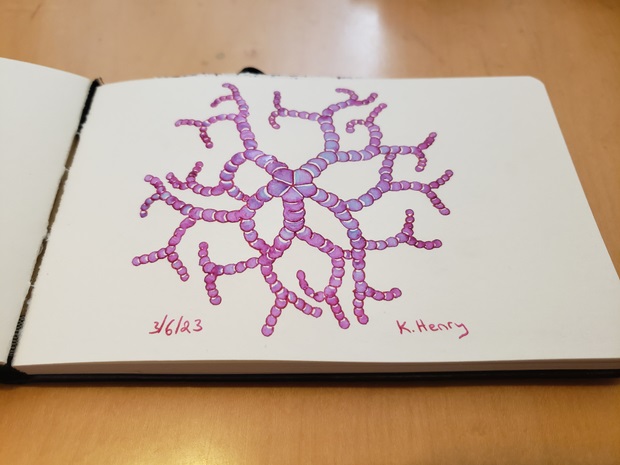 3/6/23
K. Henry